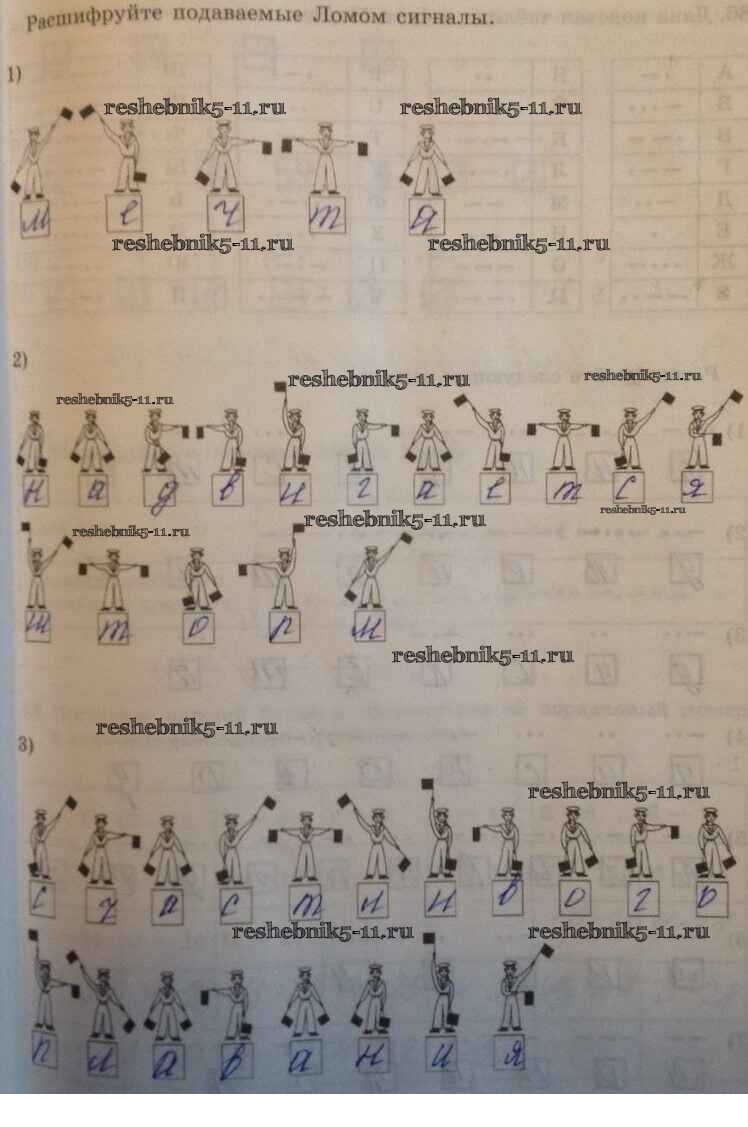 Расшифруйте подаваемые Ломом сигналы.
1)
reshebnik5-11.ru reshebnik5-11.ru
м е ч т а
reshebnik5-11.ru reshebnik5-11.ru
2)
reshebnik5-11.ru reshebnik5-11.ru reshebnik5-11.ru
н а д в и г а е т с я
reshebnik5-11.ru
reshebnik5-11.ru reshebnik5-11.ru
ш т о р м
reshebnik5-11.ru
reshebnik5-11.ru
3)
reshebnik5-11.ru
с ч а с т л и в о г о
reshebnik5-11.ru reshebnik5-11.ru
п л а в а н и я